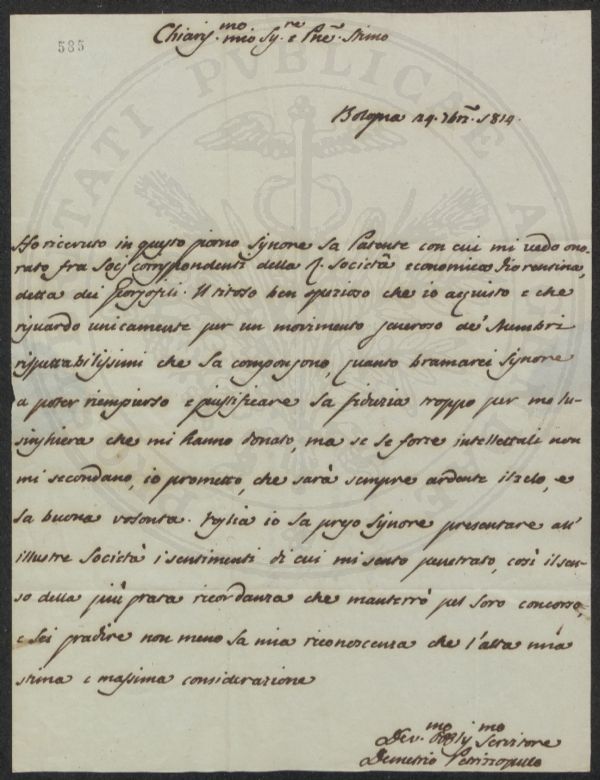 585
Chiaris.mo mio Sig.re e Pne. Stimo
Bologna 24. 9bre. 1814.
Ho ricevuto in questo giorno Signore la Patente con cui mi vedo ono-
rato fra Socj corrispondenti della R. Società economica Fiorentina,
detta dei Gorgofili. Il titolo ben spezioso che io acquisto e che
riguardo unicamente per un movimento generoso de' Membri
rispettabilissimi che la compongono, quanto bramarei Signore
a poter riempierlo e giustificare la fiduzia troppo per me lu-
singhiera che mi hanno donato, ma se le forze intellettali non
mi secondano, io prometto, che sarà sempre ardente il zelo, e
la buona volontà. Voglia io la prego Signore presentare all'
illustre Società i sentimenti di cui mi sento penetrato, così il sen-
so della più grata ricordanza che manterrò pel loro concorso,
e Lei gradire non meno la mia riconoscenza che l'alta mia
stima e massima considerazione
Dev.mo Obbl.mo Servitore
Demetrio Petrizzopulo
PUBLICAE